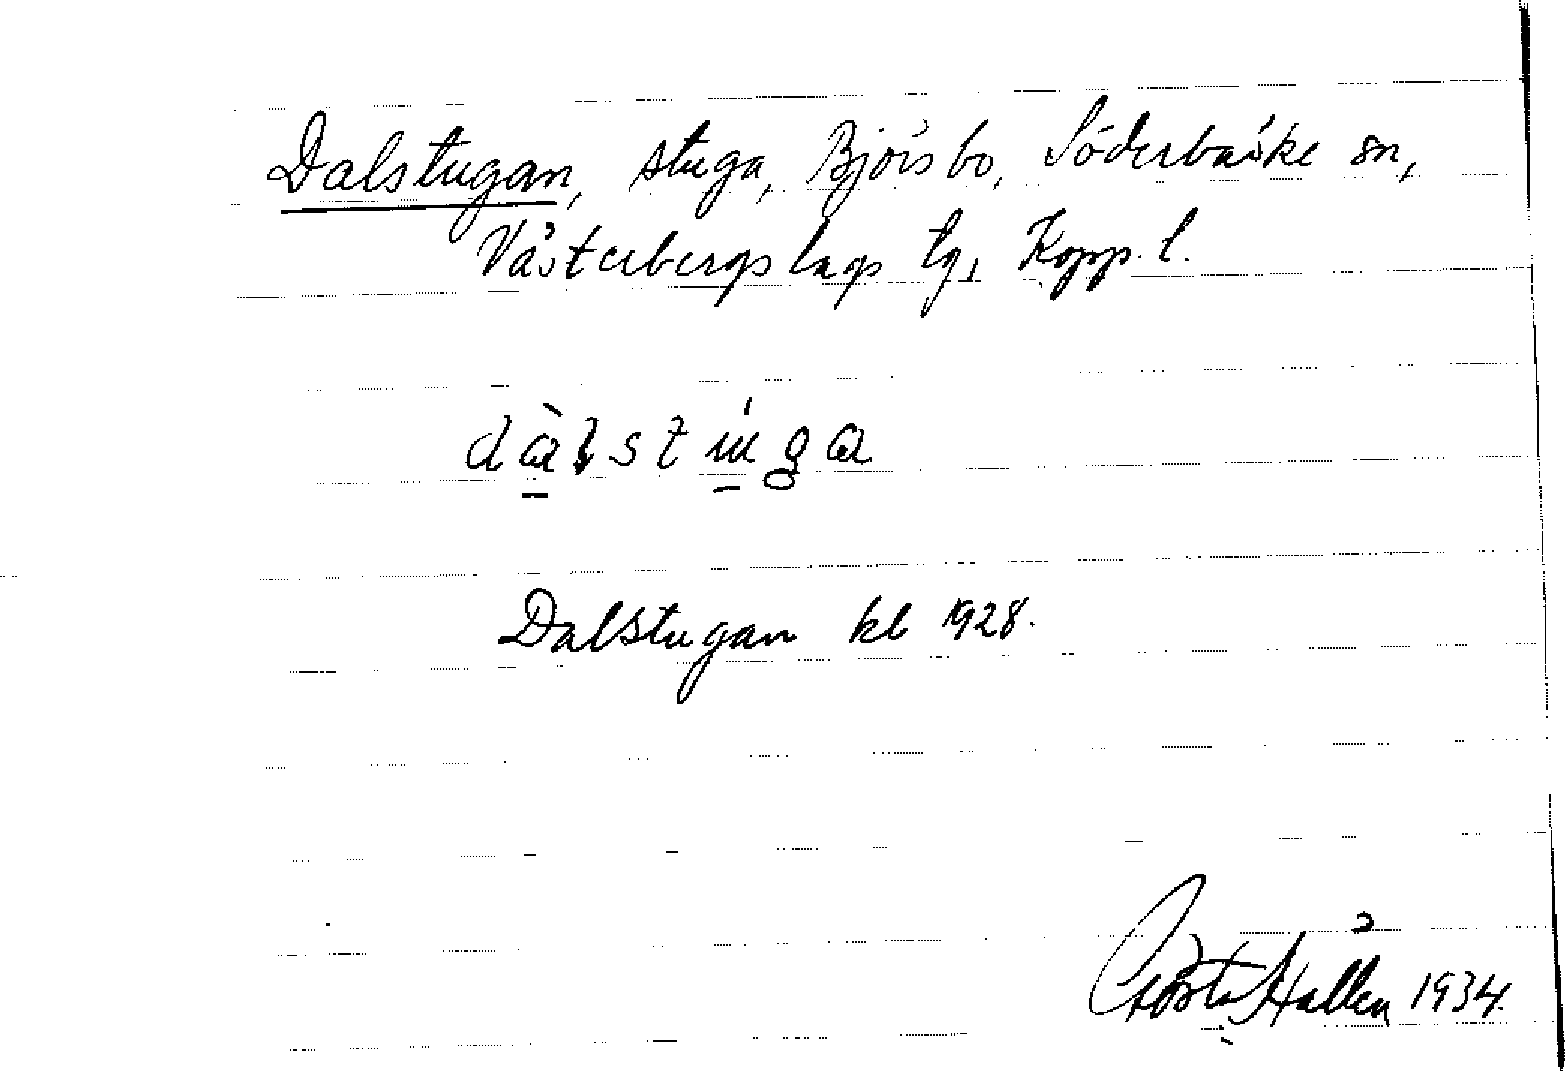 Dalstugan, stuga, Björsbo, Söderbärke sn,
Västerbergslags tg, Kopp. l.
dàlstúga
Dalstugan kb 1928.
Gösta Hallén 1934.